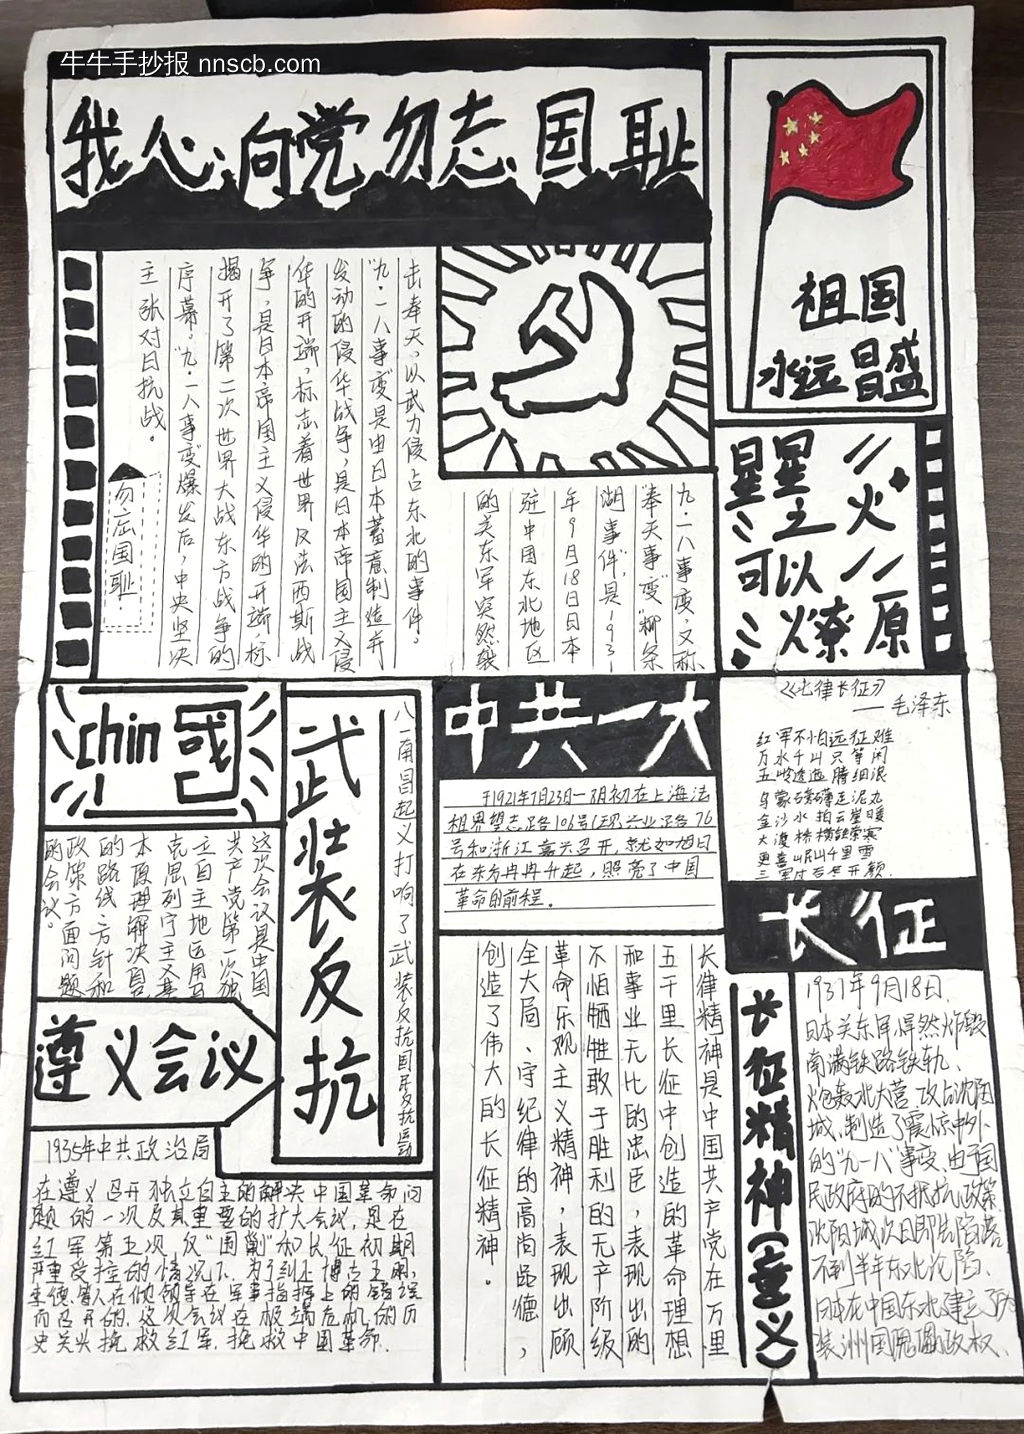 牛牛手抄报 nnscb.com
我心向党勿忘国耻
祖国
永远昌盛
九·一八事变，又称
奉天事变"柳条
湖事件"，是1931
年9月18日日本
驻中国东北地区
的关东军突然袭
击奉天，以武力侵占东北的事件。
"九·一八事变是由日本蓄意制造并
发动的侵华战争，是日本帝国主义侵
华的开端，标志着世界反法西斯战
争，是日本帝国主义侵华的开端，标
揭开了第二次世界大战东方战争的
序幕。"九·一八事变爆发后，中央坚决
主张对日抗战。
勿忘国耻
星星之火
可以燎原
chin國
武装反抗
八一南昌起义打响了武装反抗国民
中共一大
于1921年7月23日—8月初在上海法
租界望志路106号(现兴业路76
号和浙江嘉兴召开，就如旭日
在东方冉冉升起，照亮了中国
革命的前程。
《七律长征》
——毛泽东
红军不怕远征难
万水千山只等闲
五岭逶迤腾细浪
乌蒙磅礴走泥丸
金沙水拍云崖暖
大渡桥横铁索寒
更喜岷山千里雪
三军过后尽开颜
这次会议是中国
共产党第一次独
立自主地运用马
克思列宁主义基
本原理解决自己
的路线方针和
政策方面问题
的会议。
遵义会议
1935年中共政治局
在遵义召开独立自主的解决中国革命问
题的一次及其重要的扩大会议，是在
红军第五次反"围剿"和长征初期
严重受挫的情况下，为了纠正博古王明、
李德等人在他领导在军事指挥上的错误
而召开的，这次会议在极端危机的历
史关头挽救红军，挽救中国革命.
长征
长征精神(重义)
长律精神是中国共产党在万里
五千里长征中创造的革命理想
和事业无比的忠臣，表现出的
不怕牺牲敢于胜利的无产阶级
革命乐观主义精神，表现出顾
全大局、守纪律的高尚品德，
创造了伟大的长征精神。
1931年9月18日，
日本关东军悍然炸毁
南满铁路铁轨、
炮轰北大营 攻占沈阳
城，制造了震惊中外
的"九一八"事变，由于国
民政府的不抵抗政策
沈阳城次日即告陷落
不到半年东北沦陷、
日本在中国东北建立了